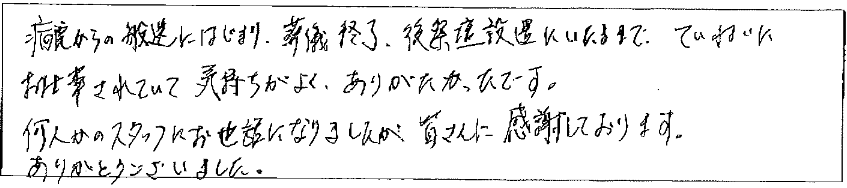 病院からの搬送にはじまり、葬儀終了、後祭壇設置にいたるまで、ていねいに
お仕事されていて気持ちがよく、ありがたかったです。
何人かのスタッフにお世話になりましたが、皆さんに感謝しております。
ありがとうございました。